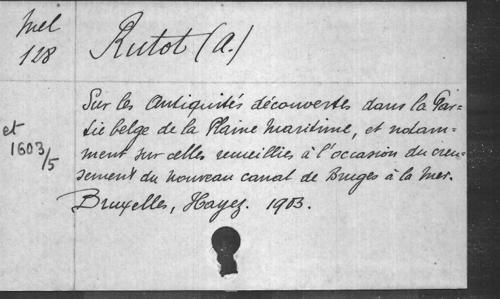 Mel
128
Rutot (A.)
Sur les Antiquités découvertes dans la Par=
tie belge de la Plaine Maritime, et notam=
ment sur celles recueillies à l'occasion du creu=
sement du nouveau canal de Bruges à la Mer.
Bruxelles, Hayez. 1903.
et
1603/5